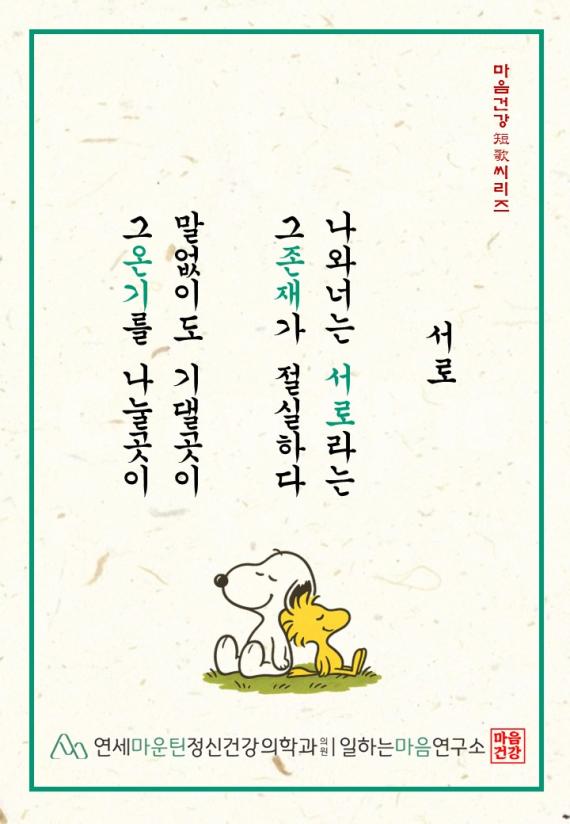 마음건강 短歌 씨리즈
서로
나와너는 서로라는
그존재가 절실하다
말없이도 기댈곳이
그온기를 나눌곳이
연세마운틴정신건강의학과의원 | 일하는마음연구소
마음
건강